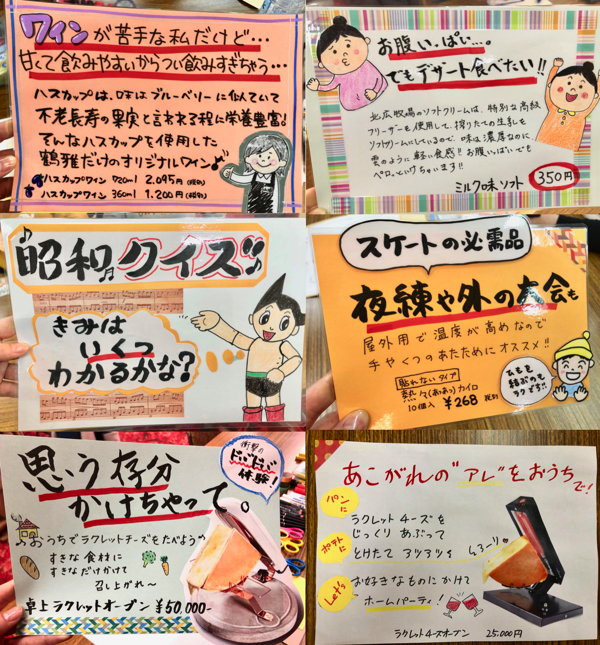 ワインが苦手な私だけど…
甘くて飲みやすいからつい飲みすぎちゃう…
ハスカップは、味はブルーベリーに似ていて
不老長寿の果実と言われる程に栄養豊富。
そんなハスカップを使用した
鶴雅だけのオリジナルワイン
ハスカップワイン 720ml 2.095円(税別)
ハスカップワイン 360ml 1.200円(税別)
お腹いっぱい…。
でもデザート食べたい!!
北広牧場のソフトクリームは、特別な高級
フリーザーを使用して、搾りたての生乳を
ソフトクリームにしているので、味は濃厚なのに
雲のように軽い食感!! お腹いっぱいでも
ペロッといけちゃいます!!
ミルク味ソフト 350円
昭和クイズ
きみは
いくつ
わかるかな?
スケートの必需品
夜練や外の大会も
屋外用で温度が高めなので
手やくつのあたために オススメ!!
貼れないタイプ
熱々(あつあつ)カイロ
10個入 ¥268 税別
ひもを
結ぶのも
ラクです!!
思う存分
かけちゃって。
衝撃の
とぉ〜
体験!
おうちでラクレットチーズをたべよう
すきな食材に
すきなだけかけて
召し上がれ〜
卓上ラクレットオーブン ¥50,000-
あこがれの"アレ"をおうちで!
パンに
ポテトに
Let's
ラクレットチーズを
じっくり あぶって
とけたて アツアツを
とろーり
お好きなものにかけて
ホームパーティ!
ラクレットチーズオーブン 25.000円